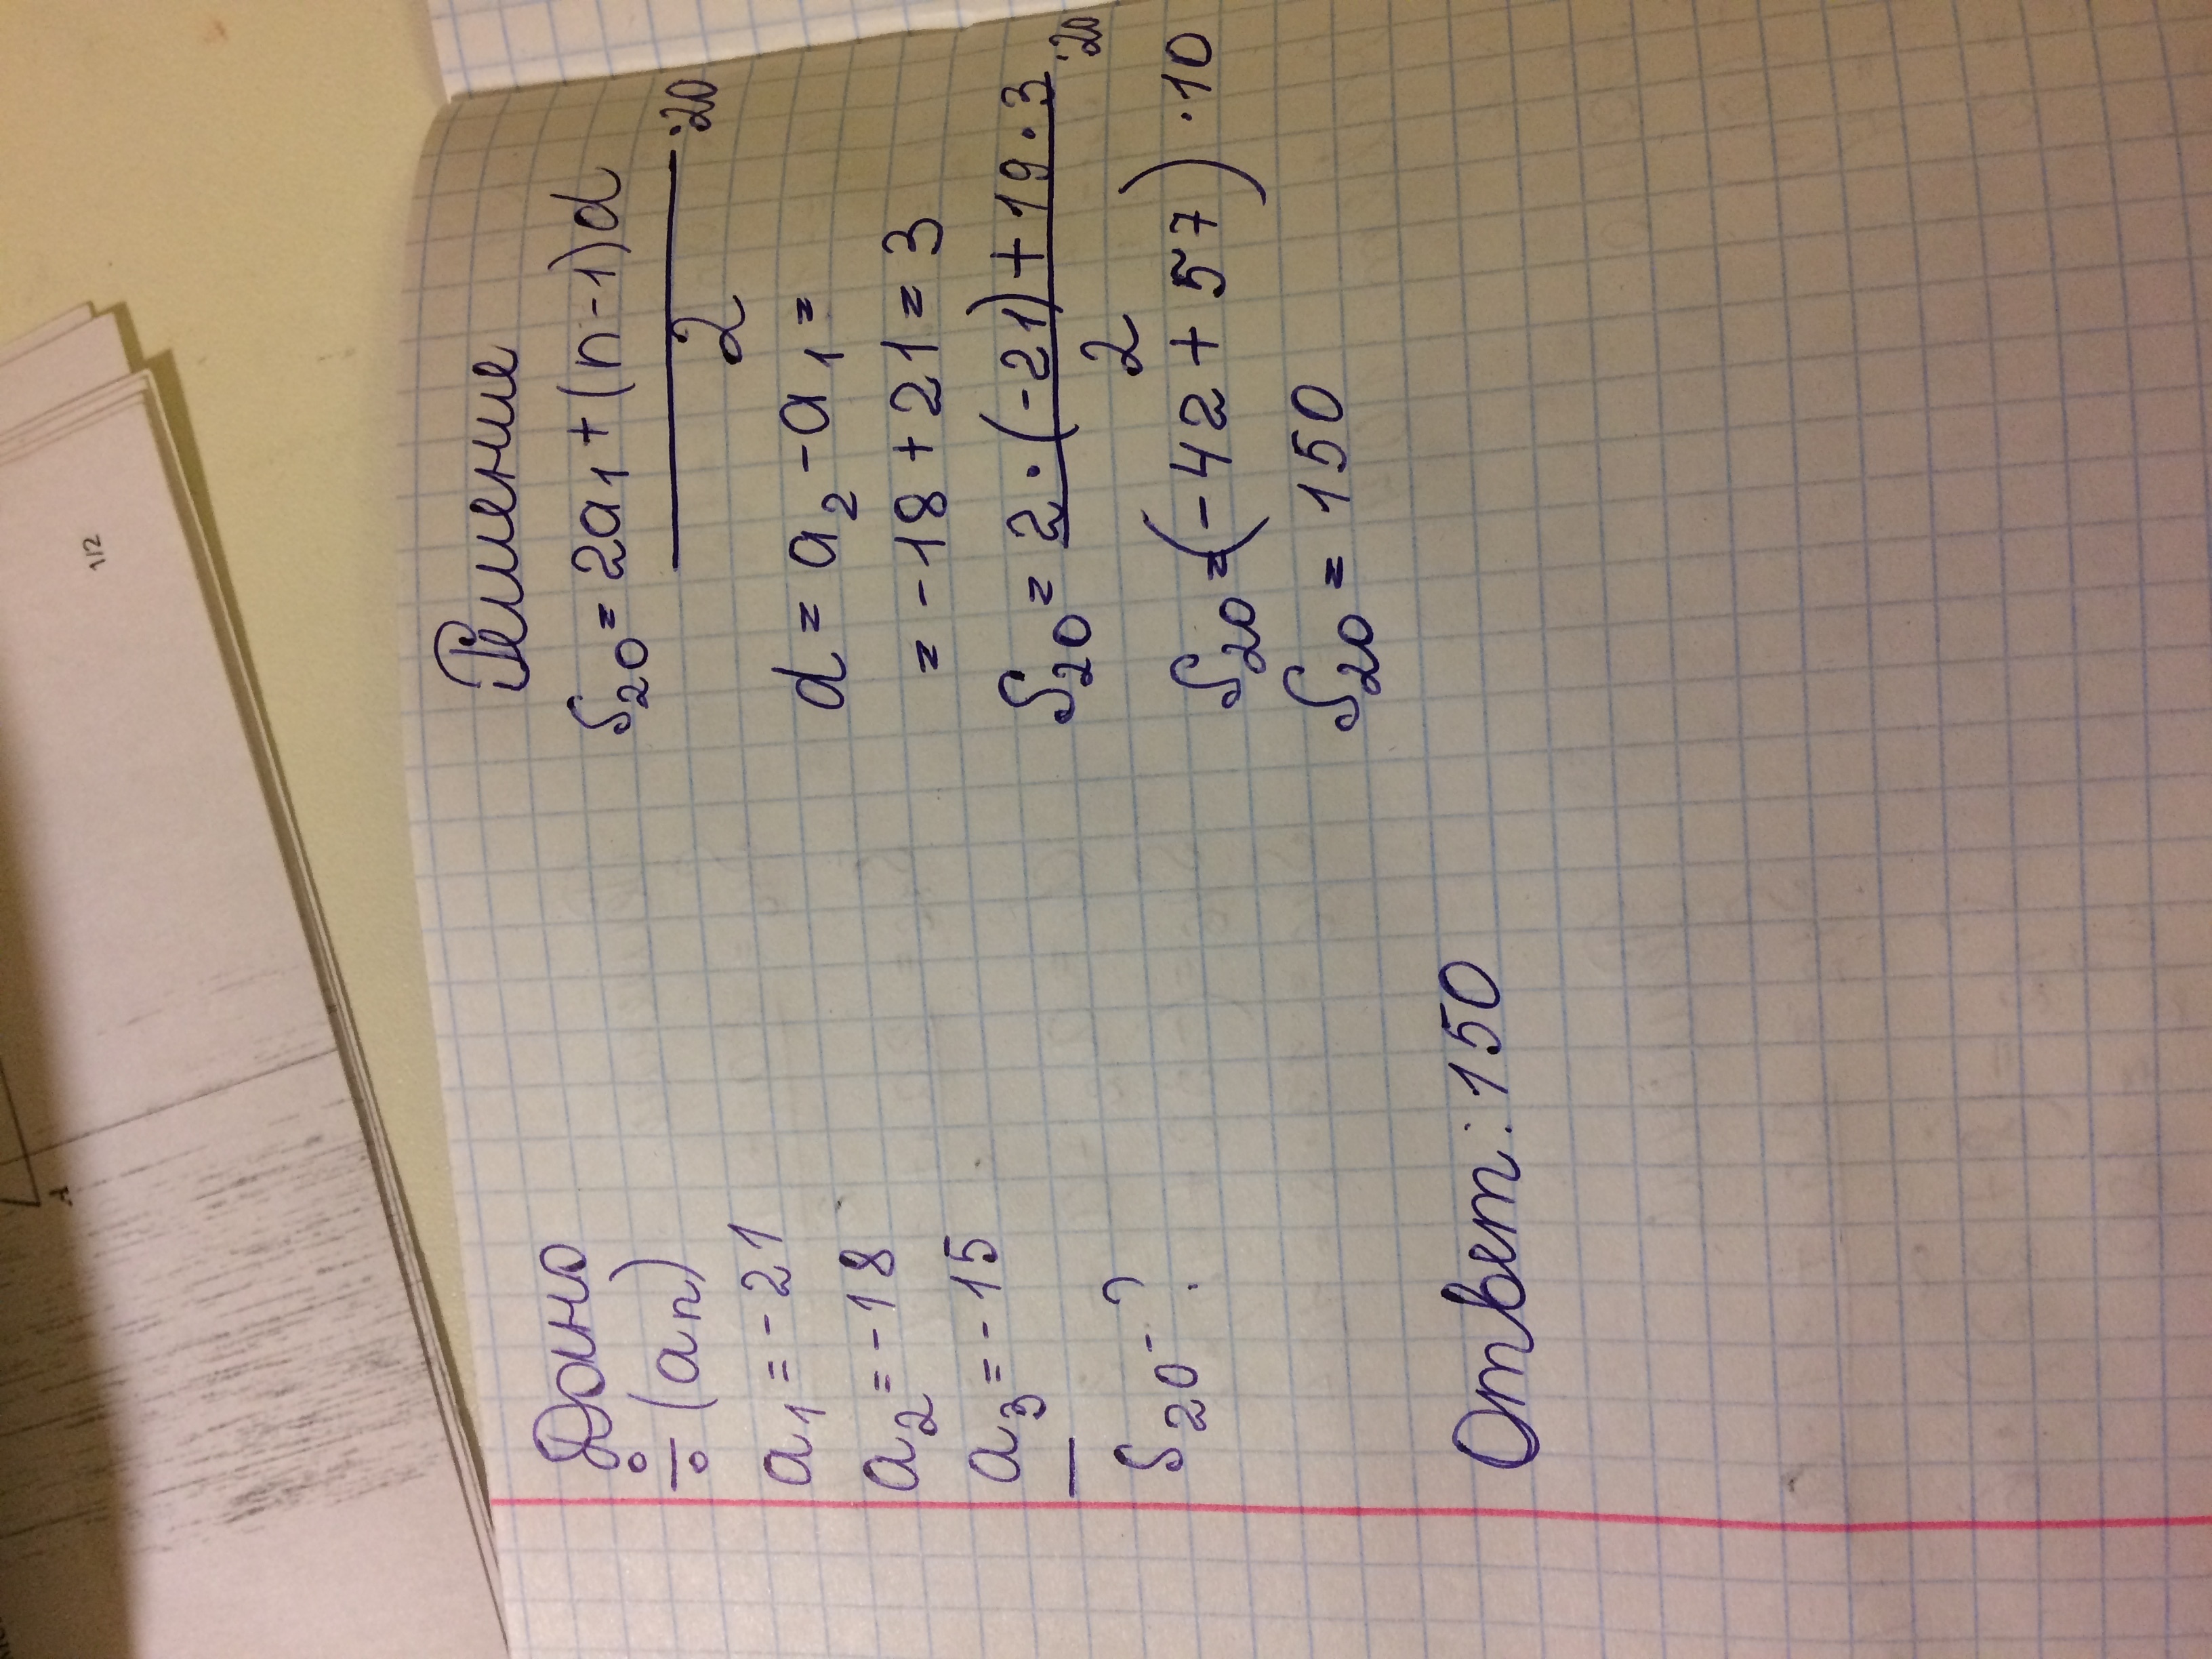 Дано
÷ (an)
a1 = -21
a2 = -18
a3 = -15
S20 - ?
Решение
S20 = 2a1 + (n-1)d
2
·20
d = a2 - a1 =
= -18 + 21 = 3
S20 = 2·(-21) + 19·3
2
·20
S20 = (-42 + 57) ·10
S20 = 150
Ответ: 150
1/2
A